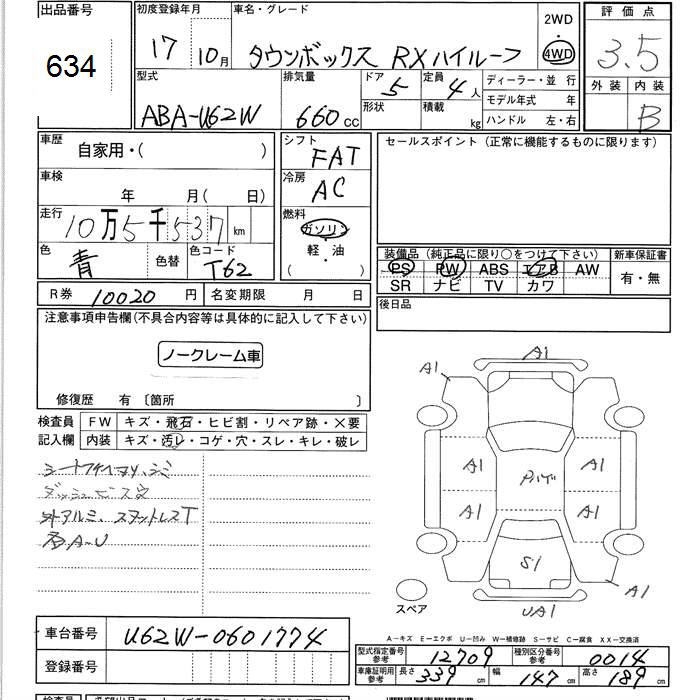 出品番号
634
初度登録年月
17 10月
車名・グレード
タウンボックス RXハイルーフ
2WD
・
4WD
評価点
3.5
外装 内装
B
型式
ABA-U62W
排気量
660cc
ドア
5
定員
4人
形状
積載
kg
ディーラー・並行
モデル年式 年
ハンドル 左・右
車歴
自家用・( )
車検
年 月( 日)
走行
10万5千537km
色
青
色替
色コード
T62
シフト
FAT
冷房
AC
燃料
ガソリン
軽・油
( )
セールスポイント(正常に機能するものに限ります)
装備品(純正品に限り○をつけて下さい) 新車保証書
PS PW ABS エアB AW
SR ナビ TV カワ
有・無
後日品
R券 10020円 名変期限 月 日
注意事項申告欄(不具合内容等は具体的に記入して下さい)
ノークレーム車
修復歴 有〔箇所 〕
検査員
記入欄
FW キズ・飛石・ヒビ割・リペア跡・×要
内装 キズ・汚レ・コゲ・穴・スレ・キレ・破レ
ダッシュビス穴
外アルミ、スタットレスT
A-U
A1
A1
A1
A1
A1
A1
S1
A1
UA1
スペア
車台番号 U62W-0601774
登録番号
A−キズ E−エクボ U−凹み W−補修跡 S−サビ C−腐食 XX−交換済
型式指定番号 参考 12709 種別区分番号 参考 0014
車庫証明用 参考 長さ 339 cm 幅 147 cm 高さ 189 cm
検査員